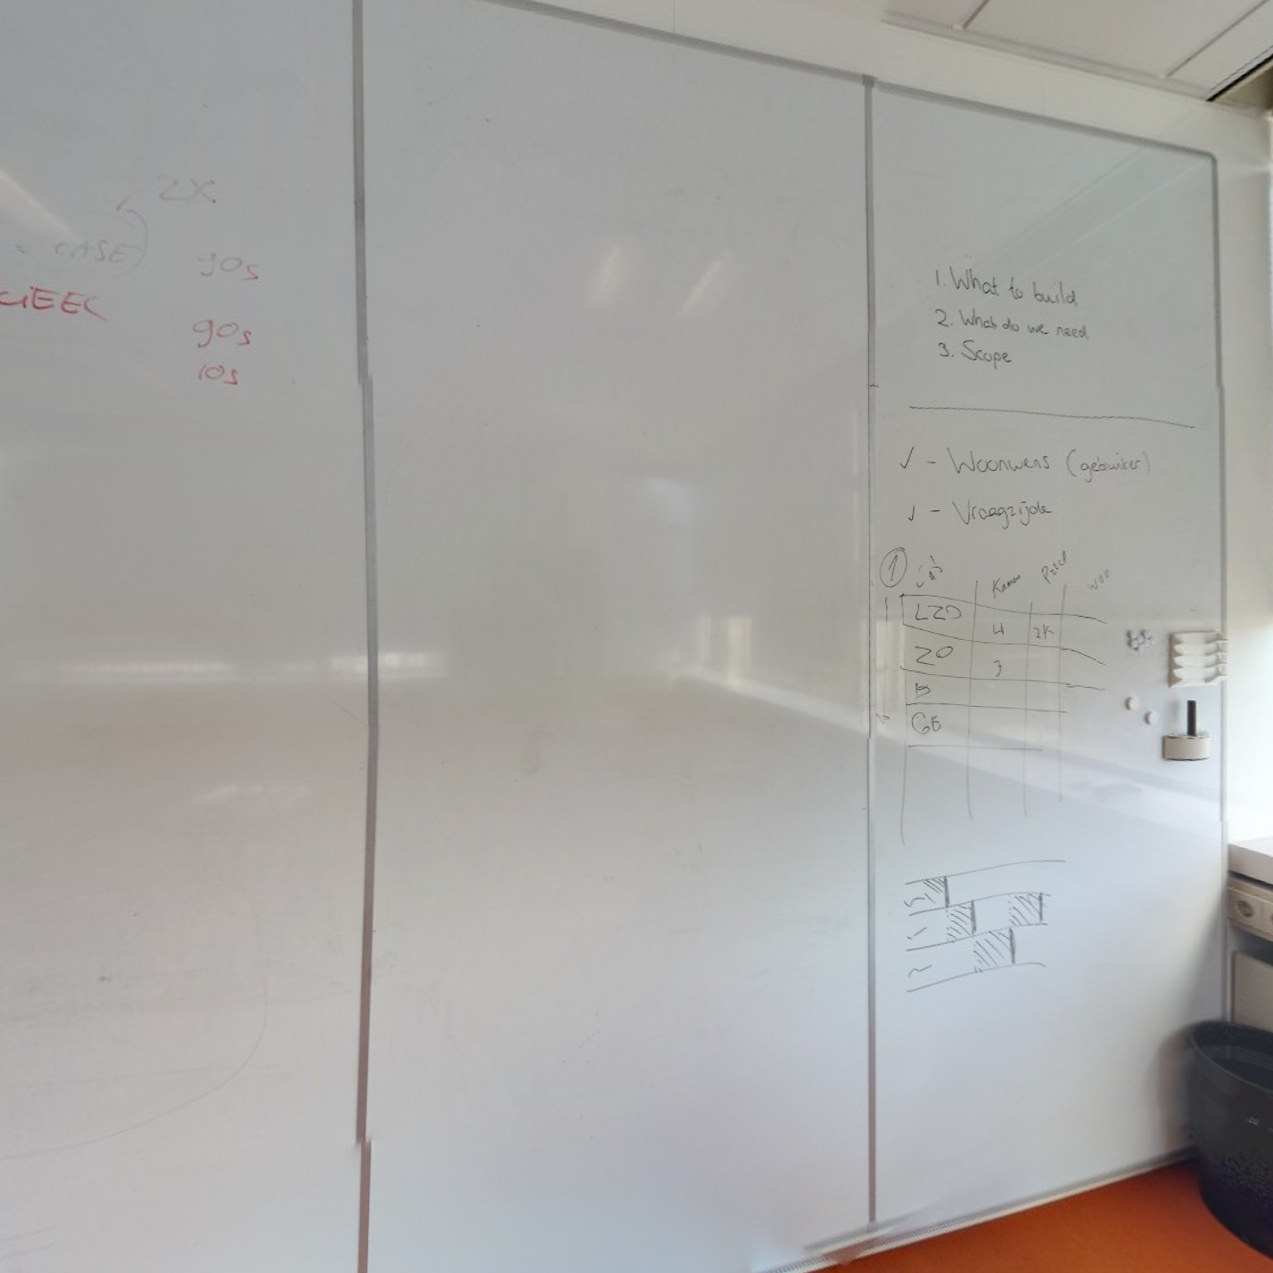 2X
= CASE)
90s
90s
10s
1. What to build
2. What do we need
3. Scope
✓ - Woonwens (gebruiker)
✓ - Vraagzijde
1
LZO
4
2K
ZO
3
B
GE